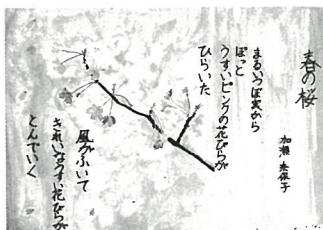 春の桜
加瀬 恵保子
まるいつぼ実から
ぽっと
うすいピンクの花びらが
ひらいた
風がふいて
きれいなうすい花びらが
とんでいく